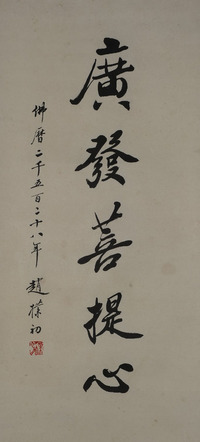 廣發菩提心
佛曆二千五百二十八年 趙樸初